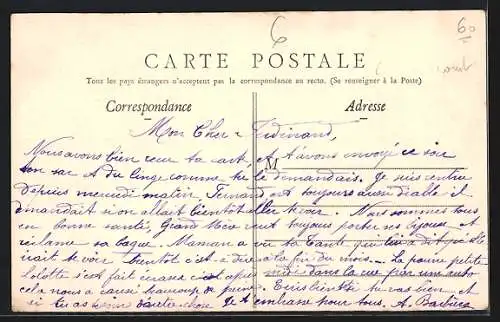 6
60
CARTE POSTALE
Tous les pays étrangers n'acceptent pas la correspondance au recto. (Se renseigner à la Poste)
Correspondance
Adresse
Mon Cher Ferdinand,
M
Nous avons bien reçu ta carte, et t'avons envoyé ce soir
ton sac et du linge comme tu le demandais. Je suis rentré
depuis mercredi matin Fernand est toujours aussi diable il
demandait si on allait bientôt aller te voir. Nous sommes tous
en bonne santé, Grand Mère veut toujours porter ses bijoux et
réclame sa bague. Maman a vu ta tante qui lui a dit qu'elle
irait te voir bientôt c'est à dire à la fin du mois. La pauvre petite
lolotte s'est fait écrasé c'est après midi dans la rue par une auto
cela nous a causé beaucoup de peine. Ecris bientôt si tu vas bien et
si tu as besoin d'autre chose Je t'embrasse pour tous. A.